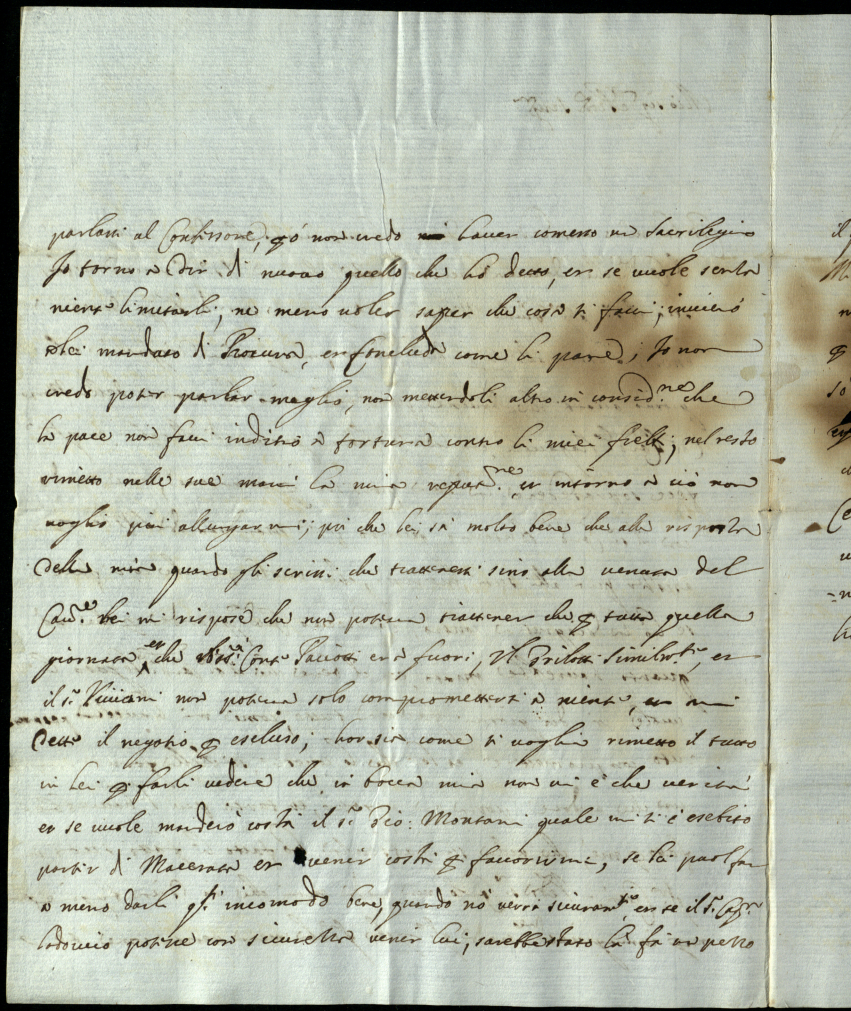 parlassi al Confessore, però non credo haver comesso un Sacrilegio
Io torno a dir di nuovo quello che hò detto, et se vuole senta
niente limitarli, ne meno voler saper che cosa si facci, invierò
mandato di Procura, et Concluda come li pare; Io non
credo poter parlar meglio, non mettendoli altro in considne che
la pace non facci inditio a tortura contro li miei; nel resto
rimetto nelle sue mani la mia reputne, et intorno a ciò non
voglio più allungarmi; poi che lei sà molto bene che alla risposta
della mia quando gli scrissi che trattenessi sino alla venuta del
Cavre lei mi rispose che non poteva trattener che per tutta quella
giornata, et che Conte era fuori, il simil, et
il sr Viviani non poteva solo compromettersi a niente, mi
dette il negotio per escluso; hor sia come si voglia rimetto il tutto
in lei per farli vedere che in bocca mia non vi è che verità
et se vuole manderò costà il sr Montani quale mi si è esebito
partir di Macerata et venir costì per favorirmi, se lei puol far
a meno darli qto incomodo bene, quando nò verrà sicuramte, et se il sr
Lodovico potesse con sicurezza venir lui, sarebbe stato la fà un pezzo